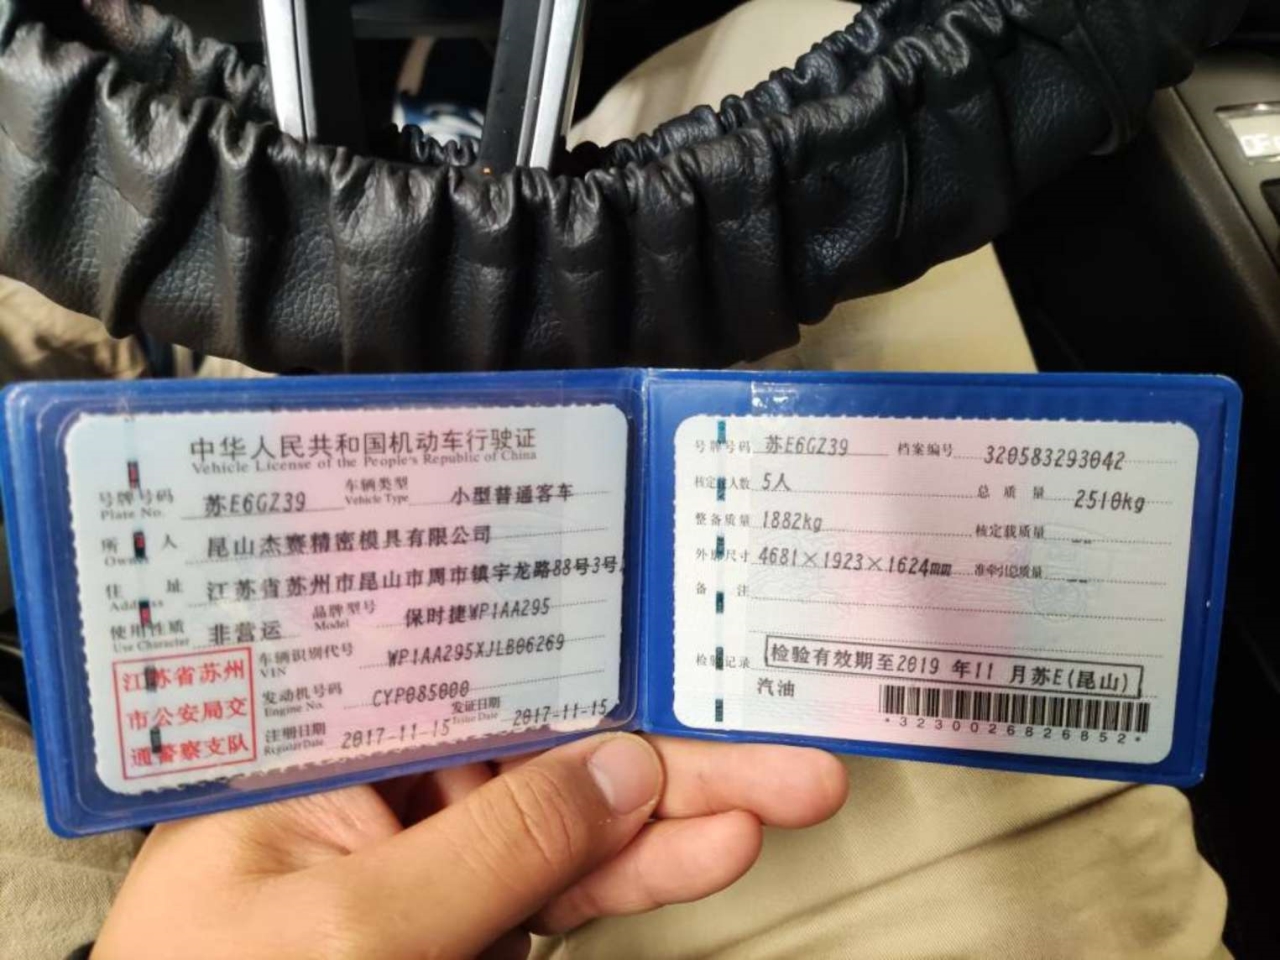 中华人民共和国机动车行驶证
Vehicle License of the People's Republic of China
号牌号码 苏E6GZ39 车辆类型 小型普通客车
Plate No. Vehicle Type
所 人 昆山杰赛精密模具有限公司
Owner
住 址 江苏省苏州市昆山市周市镇宇龙路88号3号
Address
使用性质 非营运 品牌型号 保时捷WP1AA295
Use Character Model
车辆识别代号 WP1AA295XJLB06269
VIN
发动机号码 CYP085000
Engine No.
注册日期 2017-11-15 发证日期 2017-11-15
Register Date Issue Date
江苏省苏州
市公安局交
通警察支队
号牌号码 苏E6GZ39 档案编号 320583293042
核定载人数 5人 总质量 2510kg
整备质量 1882kg 核定载质量 --
外廓尺寸 4681×1923×1624mm 准牵引总质量 --
备 注
检验记录 检验有效期至2019 年11 月苏E(昆山)
汽油
*3230026826852*